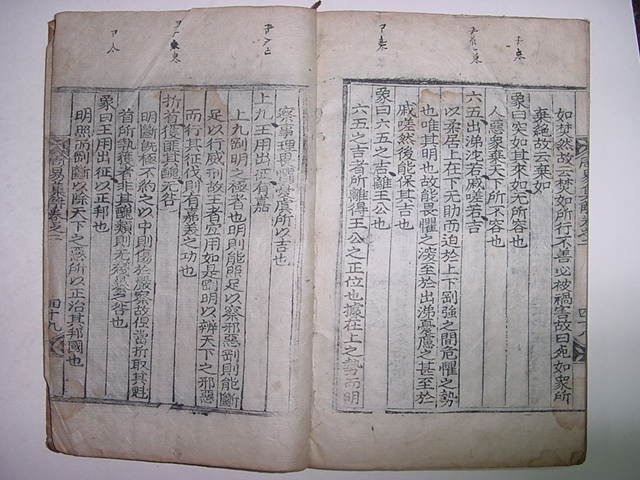 如焚然故云焚如所行不善必被禍害故曰死如衆所
棄絶故云棄如
象曰突如其來如无所容也
人惡衆棄天下所不容也
六五出涕沱若戚嗟若吉
以柔居上在下无助而迫於上下剛強之間危懼之勢
也唯其明也故能畏懼之深至於出涕憂慮之甚至於
戚嗟然後能保其吉也
象曰六五之吉離王公也
六五之吉者所離得王公之正位也據在上之勢而明
察事理畏懼憂虞所以吉也
上九王用出征有嘉
上九剛明之極者也明則能照足以察邪惡剛則能斷
足以行威刑故王者宜用如是剛明以辨天下之邪惡
而行其征伐則有嘉美之功也
折首獲匪其醜无咎
明斷旣極不約之以中則傷於嚴察故但當折取其魁
首所執獲者非其醜類則无殘暴之咎也
象曰王用出征以正邦也
明照而剛斷以除天下之惡所以正治其邦國也
四十九